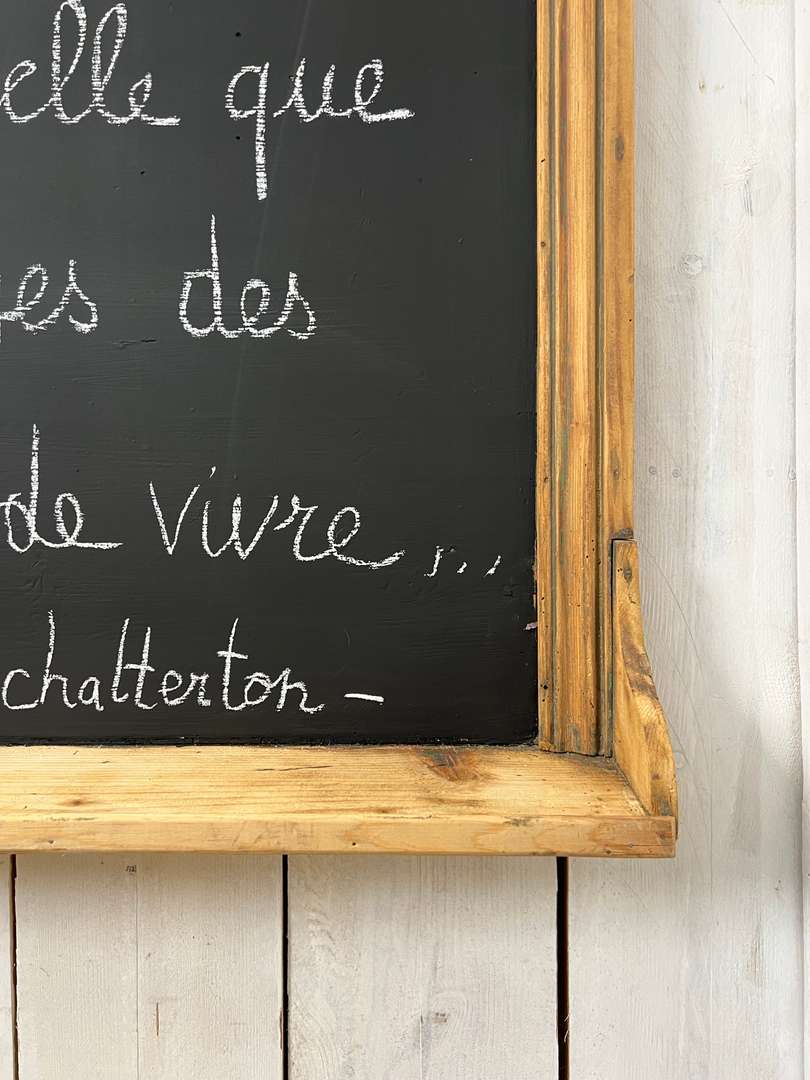 elle que
es des
de vivre...
chatterton -